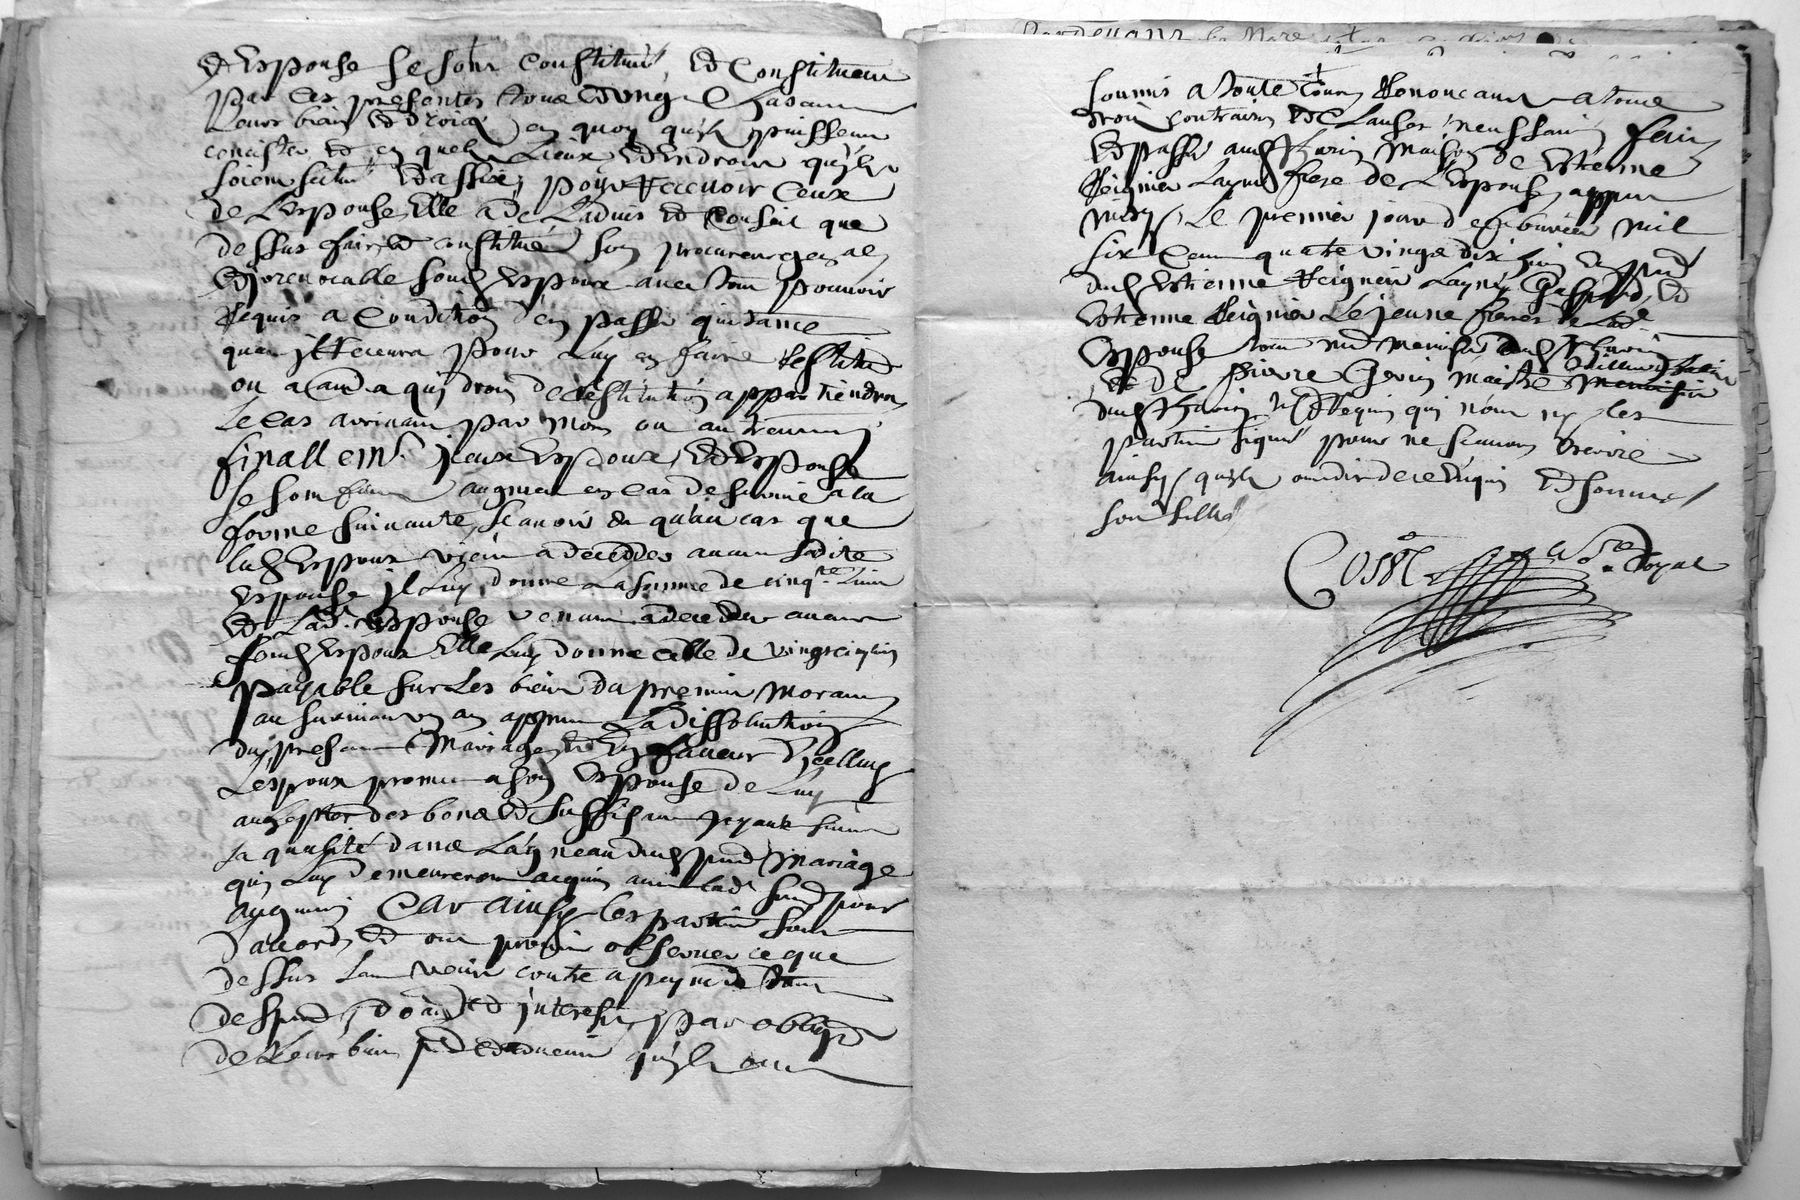 Et Espouse se sont Constitués et Constituent
par ces presentes tous et ung Chascun
Leurs biens et droicts en quoy qu'ils puissent
concister et en quels Lieux et Endroits qu'ils
soient scitués et assis, pour Recevoir Ceux
de L'espouse, Elle a de L'advis et Conseil que
dessus fait et constitué son procureur general
et irrevocable sond espoux avec tout pouvoir
Requis a Condition d'en passer quittance
quand il Recevra pour Luy en faire Restitution
ou a Ceux a qui droit de restitution appartiendra
Le cas arrivant par mort ou autrement
finallemt. iceux Espoux et Espouse
se sont augment en cas de survie a la
forme suivante, scavoir qu'au cas que
led Espoux vient a deceder avant sadite
espouse il Luy donne La somme de cinqte. Livres
et Lade. Espouse venant a deceder avant
sond Espoux Elle Luy donne celle de vingt cinq Livres
payable sur Les biens du premier mourant
au survivant un an appres La dissolution
du present Mariage, Et En faveur d'icelluy
L'espoux promet a son Espouse de Luy
achepter des bons et suffisant joyaux suivant
sa qualité dans L'anneau dud pnt Mariage
qui Luy demeureront acquis avec lad. survie pour
augment Car ainsy les parties sont
d'accord, et ont promis observer ce que
dessus sans venir contre a peyne de tous
despens, domages et interests par obligaon
de Leurs biens pnts et advenir qu'ils ont
soumis a toutte Cours Renonceants a tous
droits contraires et Clauses necessaires fait
et passé aud maison de Estienne
Reignier Layné frere de L'espouse, appres
midy, Le premier jour de febvrier mil
six Cent quatre vingt dix huit En pnce
dud Estienne Reignier Layné, et
Estienne Reignier Le jeune freres de Lade.
Espouse tous
et de Pierre Maistre
dud qui n'ont ny les
parties signé pour ne scavoir Escrire
ainsy qu'ils ont dit de ce Enquis et sommés
Nore. Royal